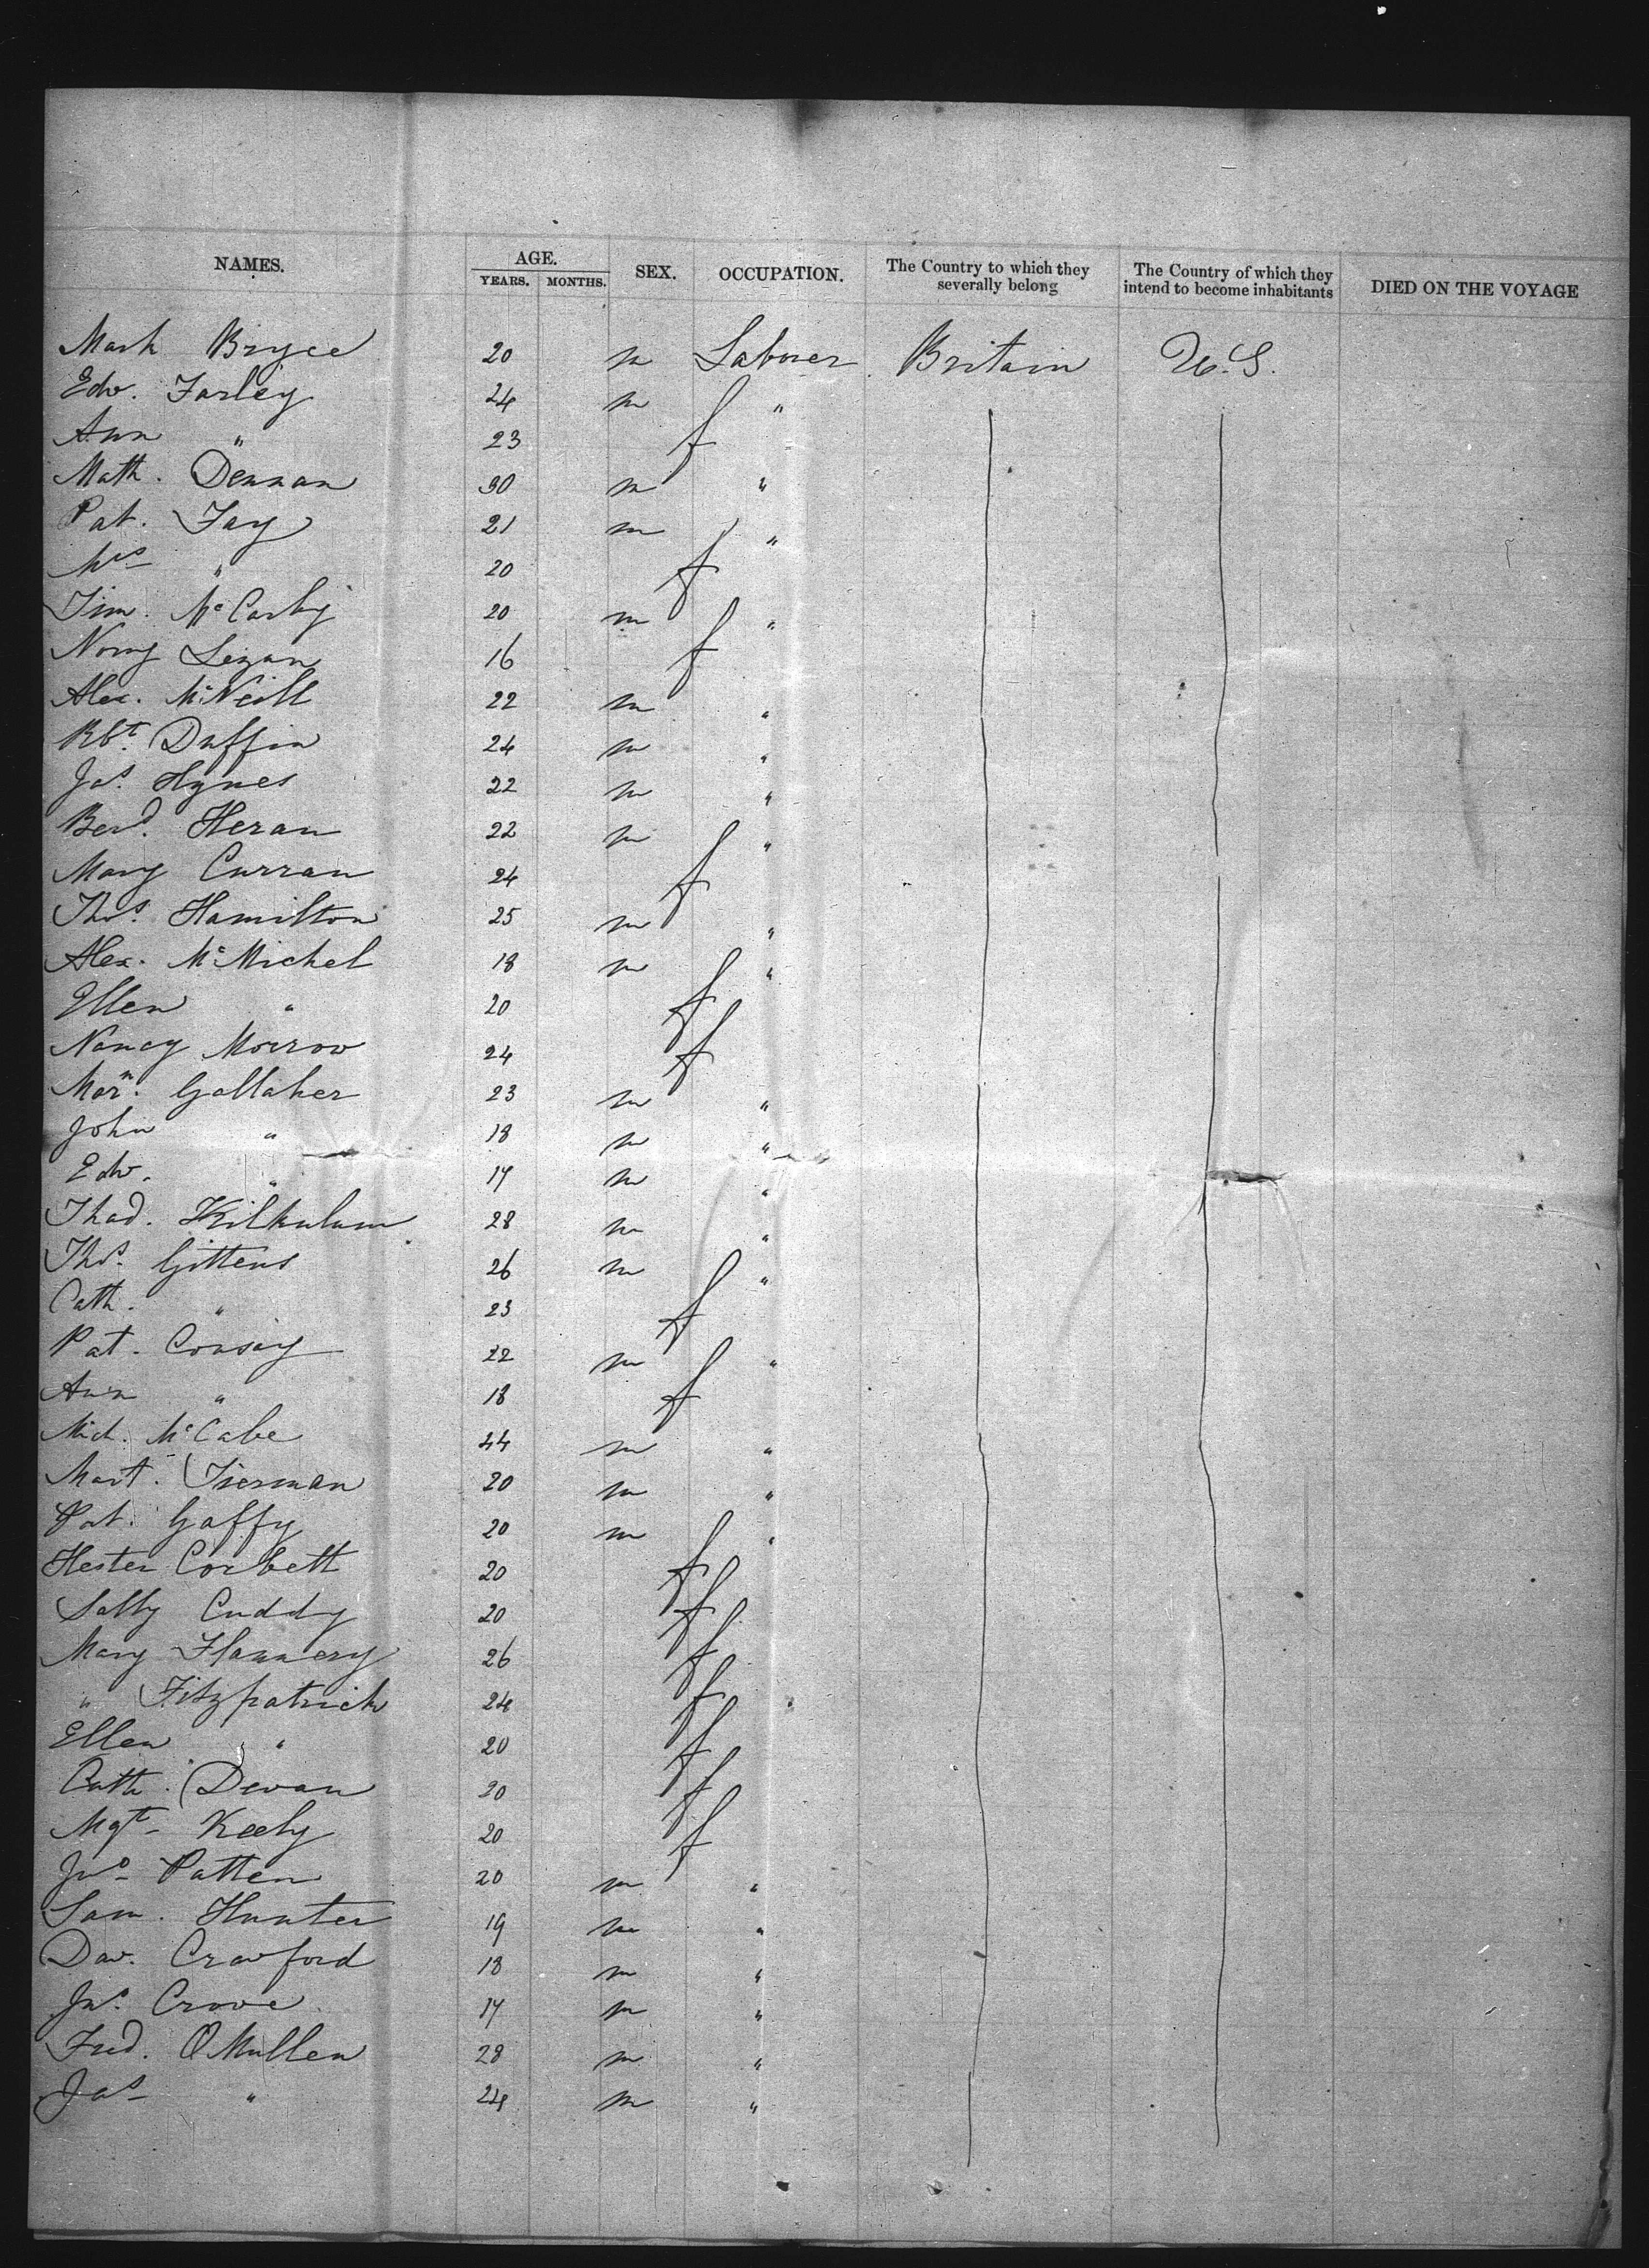 NAMES. AGE. SEX. OCCUPATION. The Country to which they severally belong The Country of which they intend to become inhabitants DIED ON THE VOYAGE
YEARS. MONTHS.
Mark Bryce 20 m Laborer Britain U.S.
Edw. Farley 24 m "
Ann " 23 f
Math. Dennan 30 m "
Pat. Fay 21 m "
Mrs " 20 f
Tim. McCarthy 20 m "
16 f
Alex. McNeill 22 m "
Rbt. Duffin 24 m "
Jas. Hynes 22 m "
Berd. Heran 22 m "
Mary Curran 24 f
Thos. Hamilton 25 m "
Alex. McMichel 18 m "
Ellen " 20 f
Nancy Morrow 24 f
Marn. Gallaher 23 m "
John " 18 m "
Edw. " 17 m "
Thad. Kilkulum 28 m "
Thos. Gittens 26 m "
Cath. " 23 f
Pat. Consay 22 m "
Ann " 18 f
Mich. McCabe 44 m "
Mart. Tierman 20 m "
Pat. Gaffy 20 m "
Hester Corbett 20 f
Sally Cuddy 20 f
Mary Flannery 26 f
" Fitzpatrick 24 f
Ellen " 20 f
Cath. Devan 20 f
Mgt. Keely 20 f
Jno. Patten 20 m "
Sam. Hunter 19 m "
Dav. Crawford 18 m "
Jno. Crowe 17 m "
Fred. O'Mullen 28 m "
Jas " 24 m "